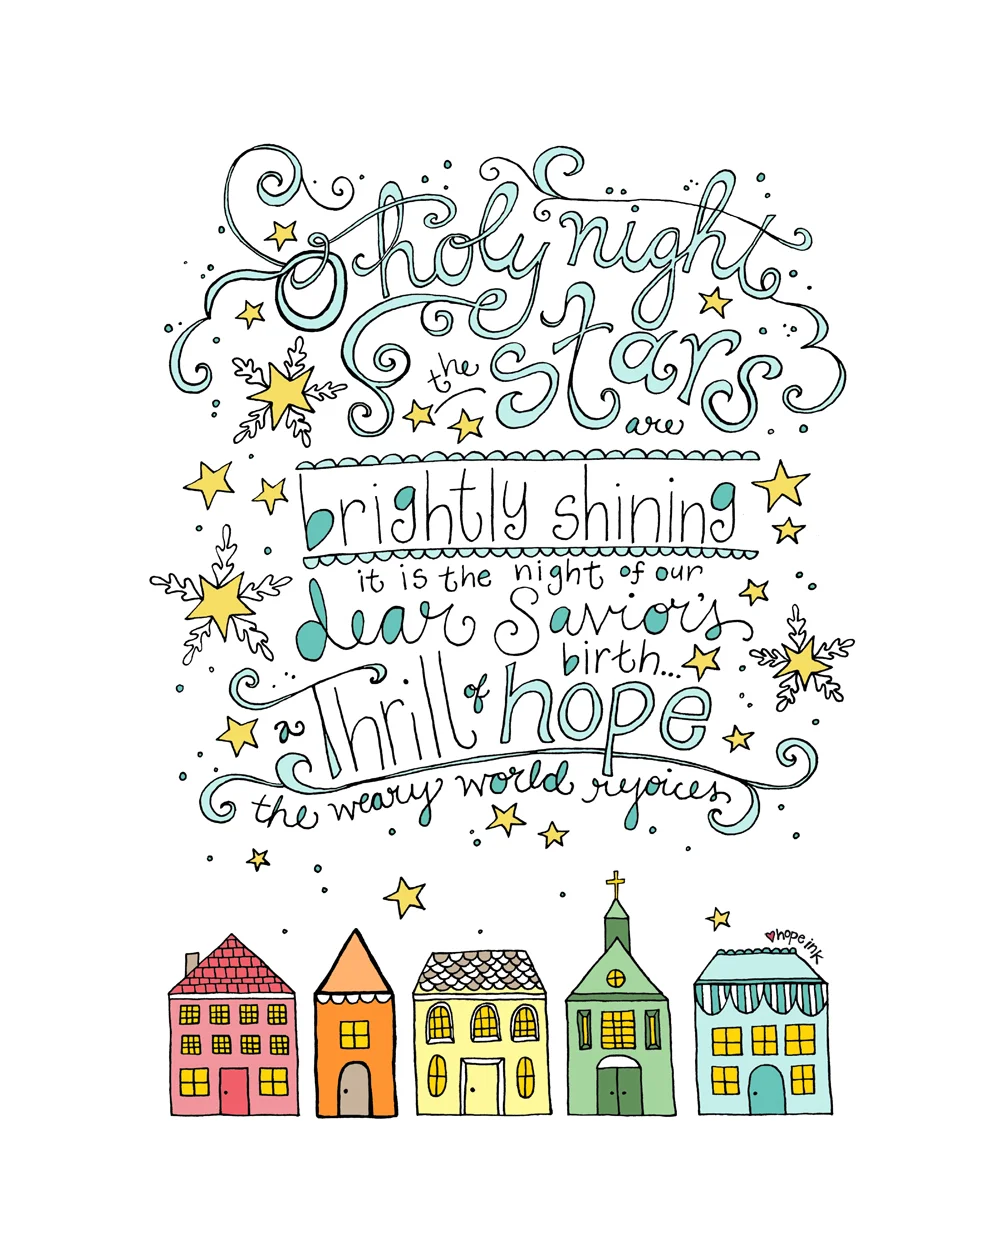 O holy night
the stars
are
brightly shining
it is the night of our
dear Savior's
birth...
a Thrill of hope
the weary world rejoices
hope ink